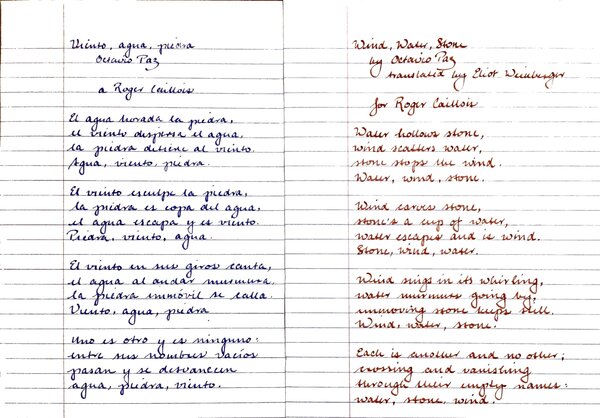 Viento, agua, piedra
Octavio Paz
a Roger Caillois
El agua horada la piedra,
el viento dispersa el agua,
la piedra detiene al viento.
Agua, viento, piedra.
El viento esculpe la piedra,
la piedra es copa del agua,
el agua escapa y es viento.
Piedra, viento, agua.
El viento en sus giros canta,
el agua al andar murmura,
la piedra inmóvil se calla.
Viento, agua, piedra
Uno es otro y es ninguno:
entre sus nombres vacíos
pasan y se desvanecen
agua, piedra, viento.
Wind, Water, Stone
by Octavio Paz
translated by Eliot Weinberger
for Roger Caillois
Water hollows stone,
wind scatters water,
stone stops the wind.
Water, wind, stone.
Wind carves stone,
stone's a cup of water,
water escapes and is wind.
Stone, wind, water.
Wind sings in its whirling,
water murmurs going by,
unmoving stone keeps still.
Wind, water, stone.
Each is another and no other;
crossing and vanishing
through their empty names:
water, stone, wind.